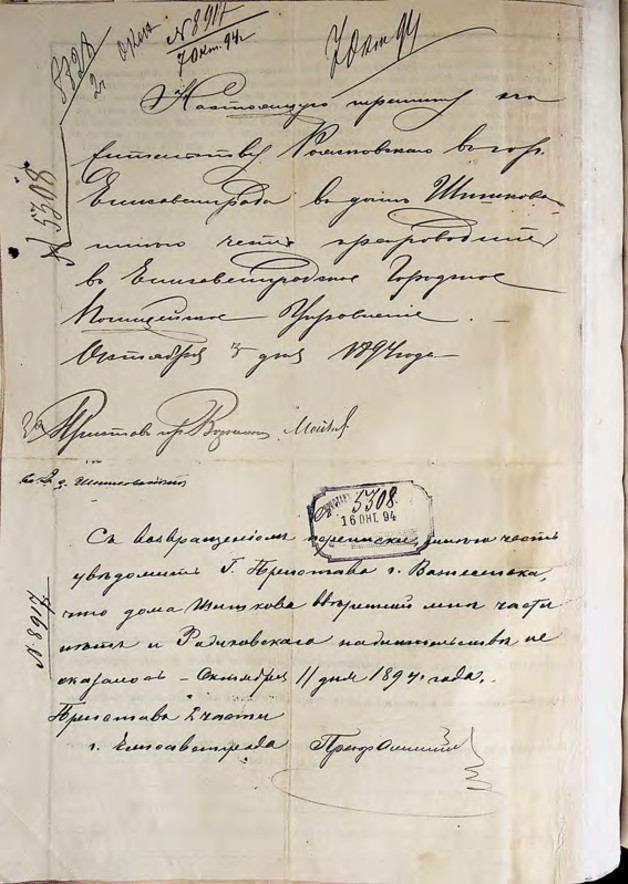 8828
2ч
N 8917
7 Окт. 94 г
7 Окт 94
N 5308
Настоящую переписку по
жительству Радиковского в гор.
Елисаветграде в доме Шишкова
имею честь препроводить
в Елисаветградское Городское
Полицейское Управление. —
Октября 3 дня 1894 года —
За Пристав гор. Вознесен
5308
16 ОКТ. 94
Съ возвращеніемъ переписки имею честь
уведомить Г. Пристава г. Вознесенска,
что дома Шишкова в вверенной мне части
нетъ и Радиковскаго на жительстве не
оказалось — Октября 11 дня 1894 года.
N 8917
Пристава 2 части
г. Елисаветграда